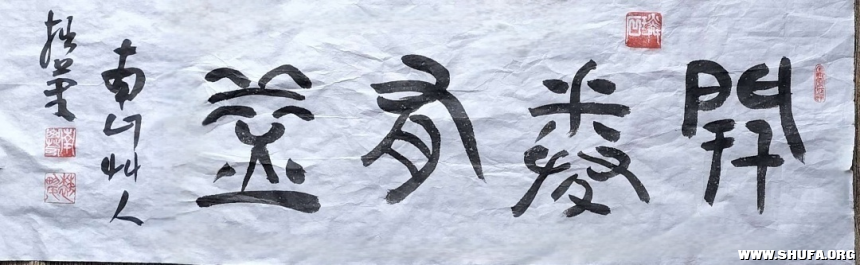 開卷有益
南山艸人
拙筆
WWW.SHUFA.ORG